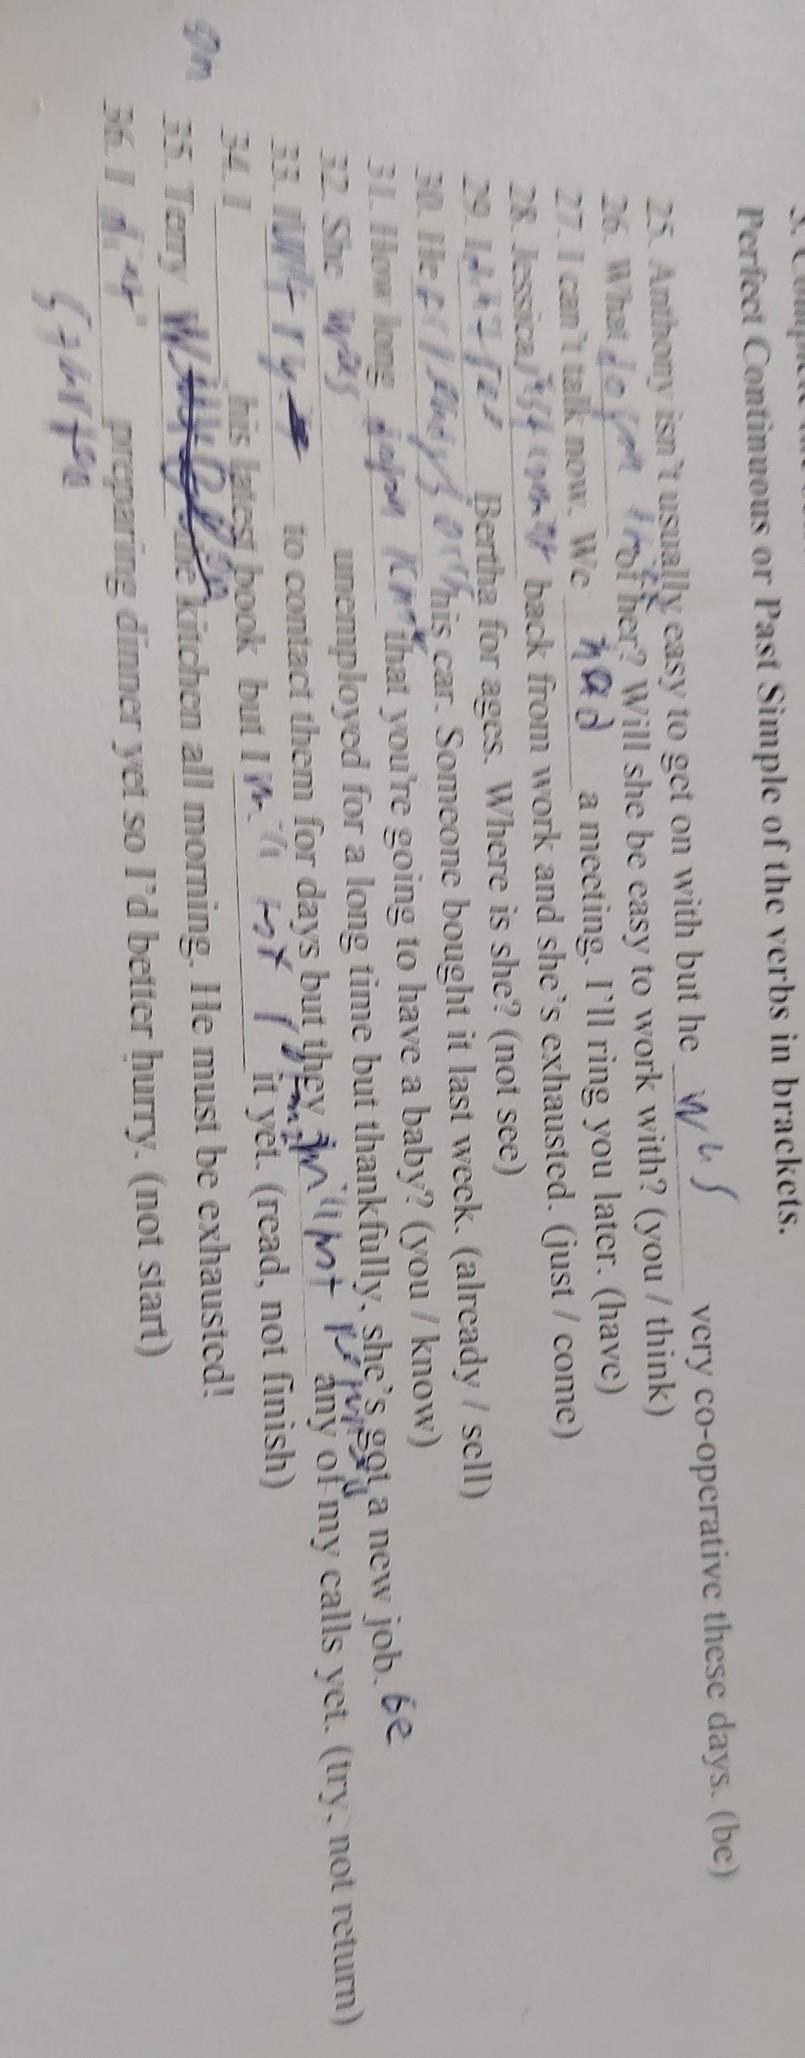 Perfect Continuous or Past Simple of the verbs in brackets.
25. Anthony isn't usually easy to get on with but he was very co-operative these days. (be)
26. What do you think of her? Will she be easy to work with? (you / think)
27. I can't talk now. We had a meeting. I'll ring you later. (have)
28. Jessica just back from work and she's exhausted. (just / come)
29. I Bertha for ages. Where is she? (not see)
30. He his car. Someone bought it last week. (already / sell)
31. How long do you know that you're going to have a baby? (you / know)
32. She was unemployed for a long time but thankfully, she's got a new job. be
33. I to contact them for days but they any of my calls yet. (try, not return)
34. I his latest book but I it yet. (read, not finish)
35. Terry the kitchen all morning. He must be exhausted!
36. I preparing dinner yet so I'd better hurry. (not start)